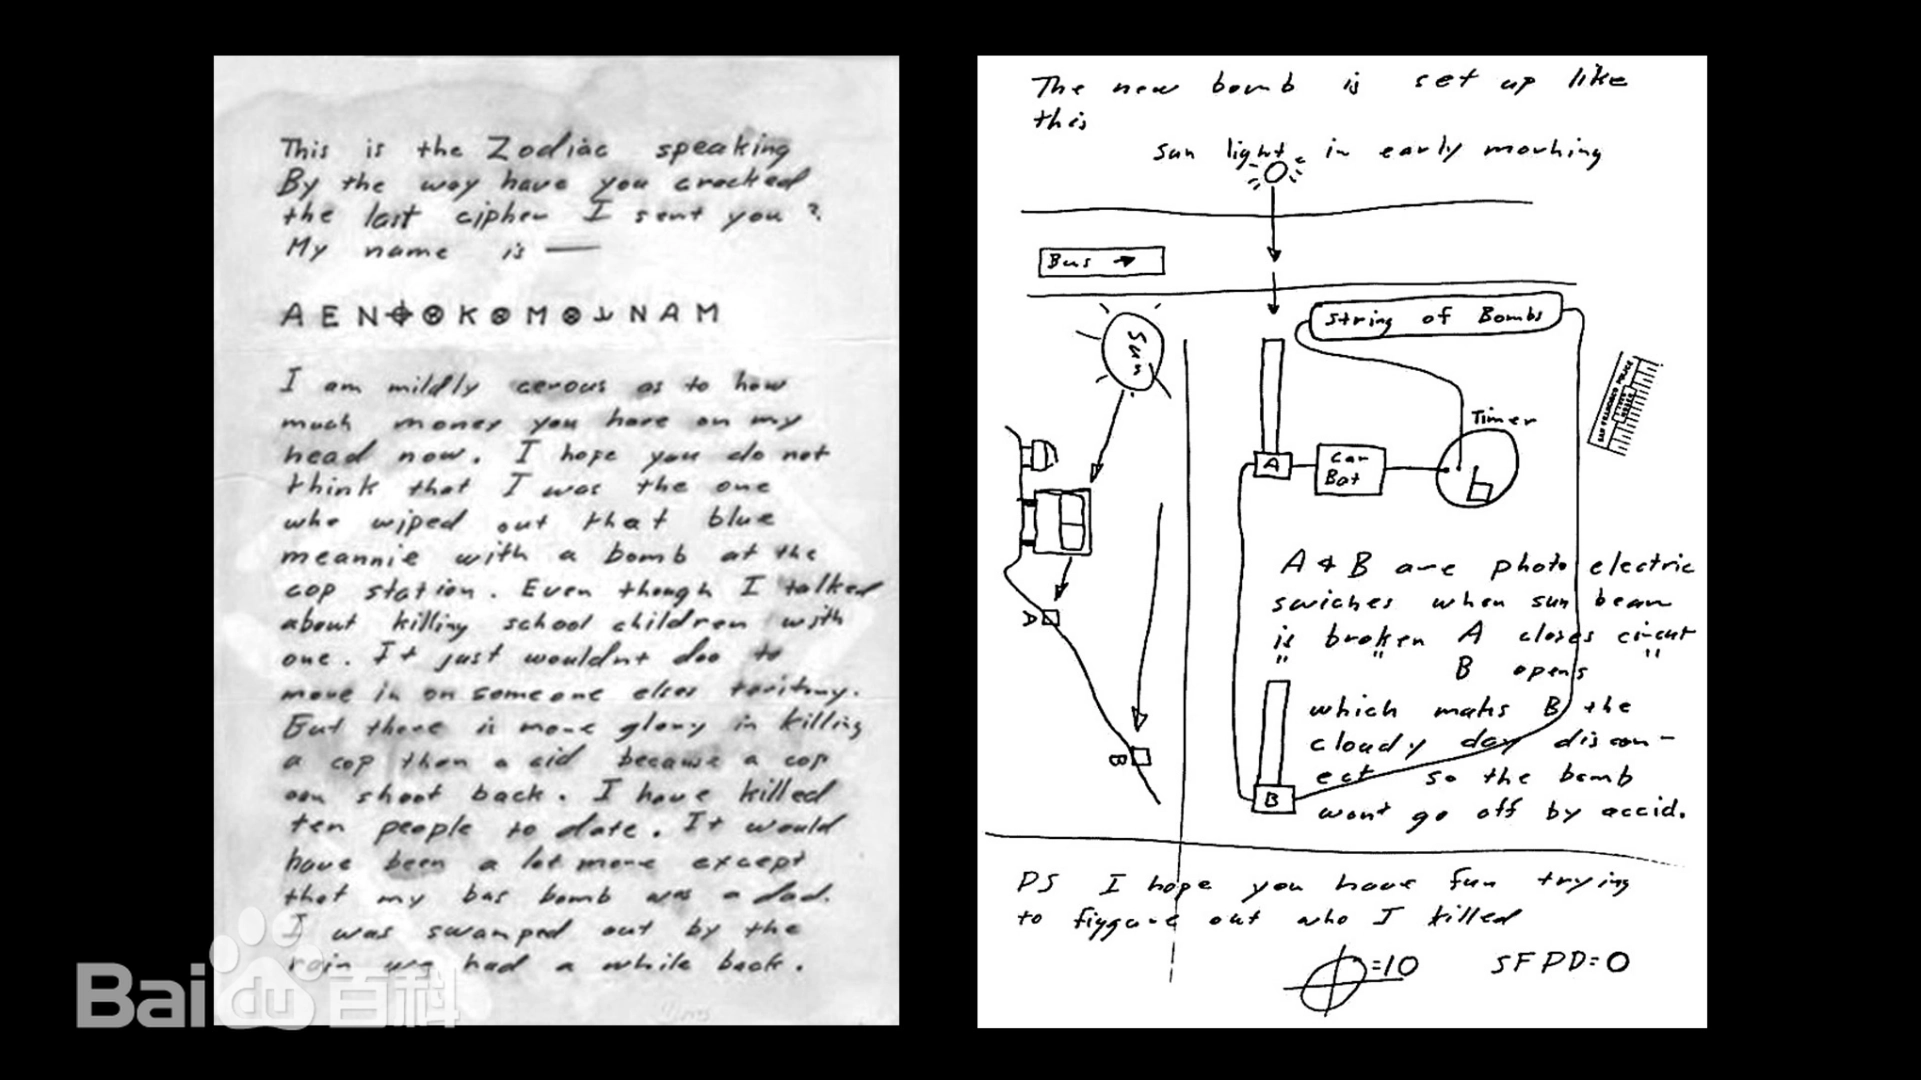 This is the Zodiac speaking
By the way have you cracked
the last cipher I sent you?
My name is —
A E N ⌖ ⊗ K ⊗ M ⊗ N A M
I am mildly cerous as to how
much money you have on my
head now. I hope you do not
think that I was the one
who wiped out that blue
meannie with a bomb at the
cop station. Even though I talked
about killing school children with
one. It just wouldnt doo to
move in on someone elses teritory.
But there is more glory in killing
a cop than a cid because a cop
can shoot back. I have killed
ten people to date. It would
have been a lot more except
that my bus bomb was a dud.
I was swamped out by the
rain we had a while back.
The new bomb is set up like
this
sun light in early morning
Bus →
Sun
A
B
String of Bombs
Timer
A
Car
Bat
SAN FRANCISCO POLICE
A & B are photo electric
swiches when sun beam
is broken A closes circut
" " B opens "
which maks B the
cloudy day discon-
ect so the bomb
wont go off by accid.
B
PS I hope you have fun trying
to figgure out who I killed
⌖=10 SFPD=0
Baidu百科